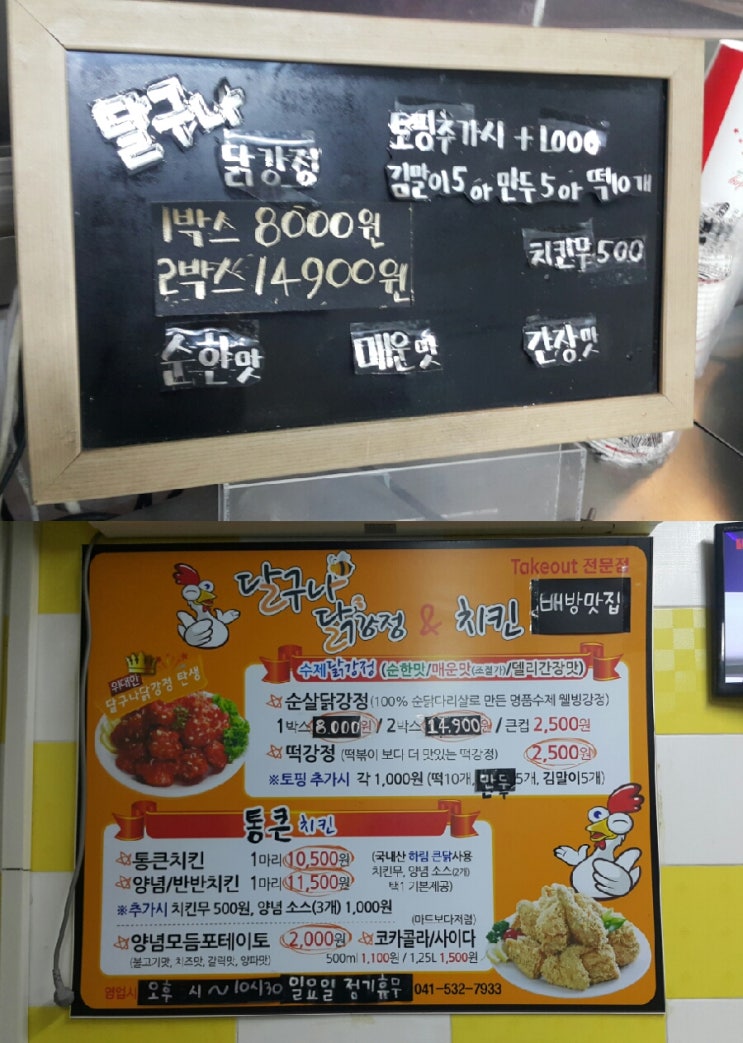 달구나
닭강정
토핑추가시 +1000
김말이5 or 만두5 or 떡10개
1박스 8000원
2박스 14900원
치킨무 500
순한맛 매운맛 간장맛
Takeout 전문점
달구나
닭강정 & 치킨 배방맛집
위대한
달구나닭강정 탄생
수제닭강정 (순한맛/매운맛(조절가)/델리간장맛)
순살닭강정 (100% 순닭다리살로 만든 명품수제 웰빙강정)
1박스 8.000원 / 2박스 14.900원 / 큰컵 2,500원
떡강정 (떡볶이 보다 더 맛있는 떡강정) 2,500원
※토핑 추가시 각 1,000원 (떡10개, 만두5개, 김말이5개)
통큰 치킨
통큰치킨 1마리 10,500원
양념/반반치킨 1마리 11,500원
(국내산 하림 큰닭사용
치킨무, 양념 소스(2개)
택1 기본제공)
※추가시 치킨무 500원, 양념 소스(3개) 1,000원
(마트보다저렴)
양념모듬포테이토 2,000원 코카콜라/사이다
(불고기맛, 치즈맛, 칠릭맛, 양파맛) 500ml 1,100원 / 1,25L 1,500원
영업시 오후 시~10시30 일요일 정기휴무 041-532-7933